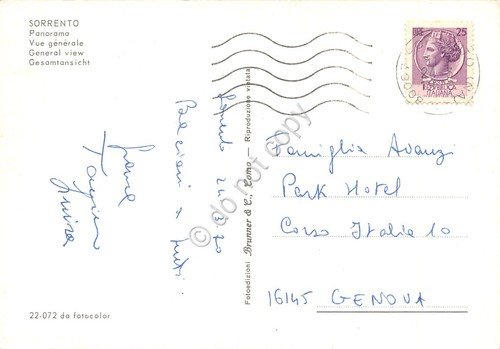 SORRENTO
Panorama
Vue générale
General view
Gesamtansicht
Sorrento 24 3 70
Bacioni a tutti
Luisa
22-072 da fotocolor
Fotoedizioni Brunner & C., Como — Riproduzione vietata
do not copy
LIRE 25
REPUBBLICA
ITALIANA
Famiglia Avanzi
Park Hotel
Corso Italia 10
16145 GENOVA